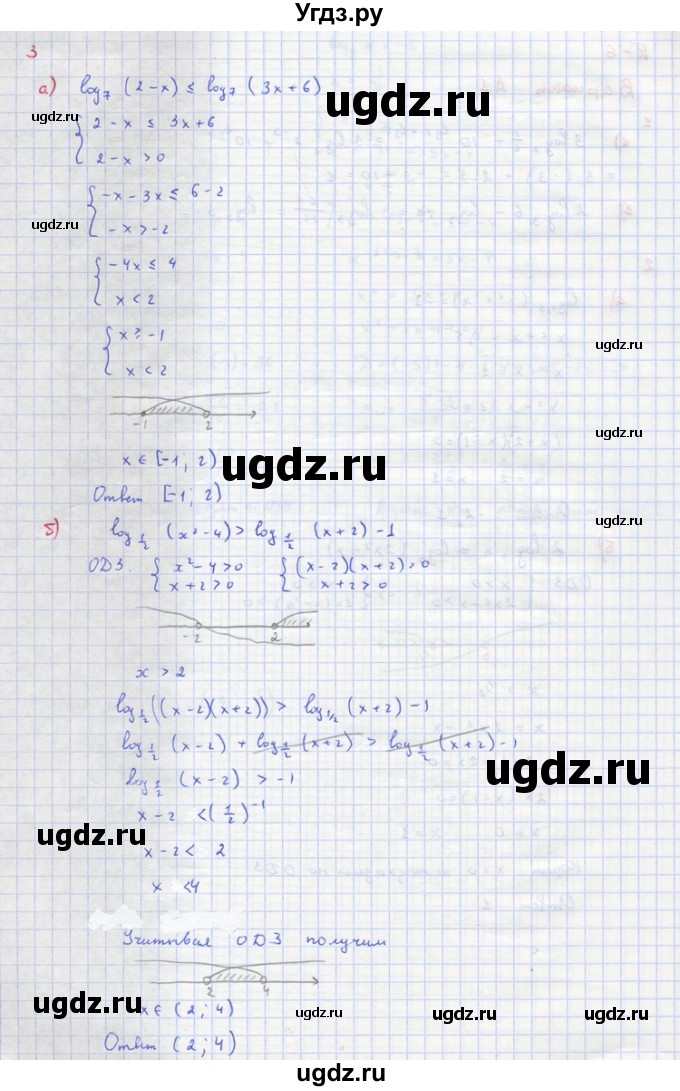 Угдз.ру
3
а) log₇ (2-x) ≤ log₇ (3x+6)
{ 2-x ≤ 3x+6
2-x >0
{ -x-3x ≤ 6-2
-x>-2
{ -4x ≤ 4
x<2
{ x ≥ -1
x<2
-1 2
x ∈ [-1; 2)
Ответ [-1; 2)
б) log_{1/2} (x²-4) > log_{1/2} (x+2) -1
ОДЗ. { x²-4>0 { (x-2)(x+2)>0
x+2>0 x+2>0
-2 2
x>2
log_{1/2} ((x-2)(x+2)) > log_{1/2} (x+2) -1
log_{1/2} (x-2) + log_{1/2} (x+2) > log_{1/2} (x+2) -1
log_{1/2} (x-2) > -1
x-2 < (1/2)⁻¹
x-2 < 2
x <4
Учитывая ОДЗ получим
2 4
x ∈ (2; 4)
Ответ (2; 4)
ugdz.ru
ugdz.ru
ugdz.ru
ugdz.ru
ugdz.ru
ugdz.ru
ugdz.ru
ugdz.ru
ugdz.ru
ugdz.ru
ugdz.ru
ugdz.ru
ugdz.ru
ugdz.ru